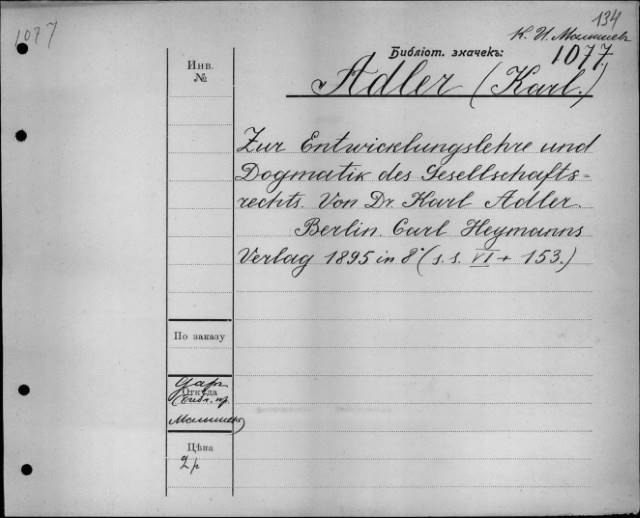 1077
134
К. И. Малышевъ
Библіот. значекъ:
1077
Adler (Karl.)
Инв.
№
Zur Entwicklungslehre und
Dogmatik des Gesellschafts-
rechts. Von Dr. Karl Adler.
Berlin. Carl Heymanns
Verlag 1895 in 8° (s. s. VI + 153.)
По заказу
Откуда
Даръ
Малышева
Цѣна
2 р